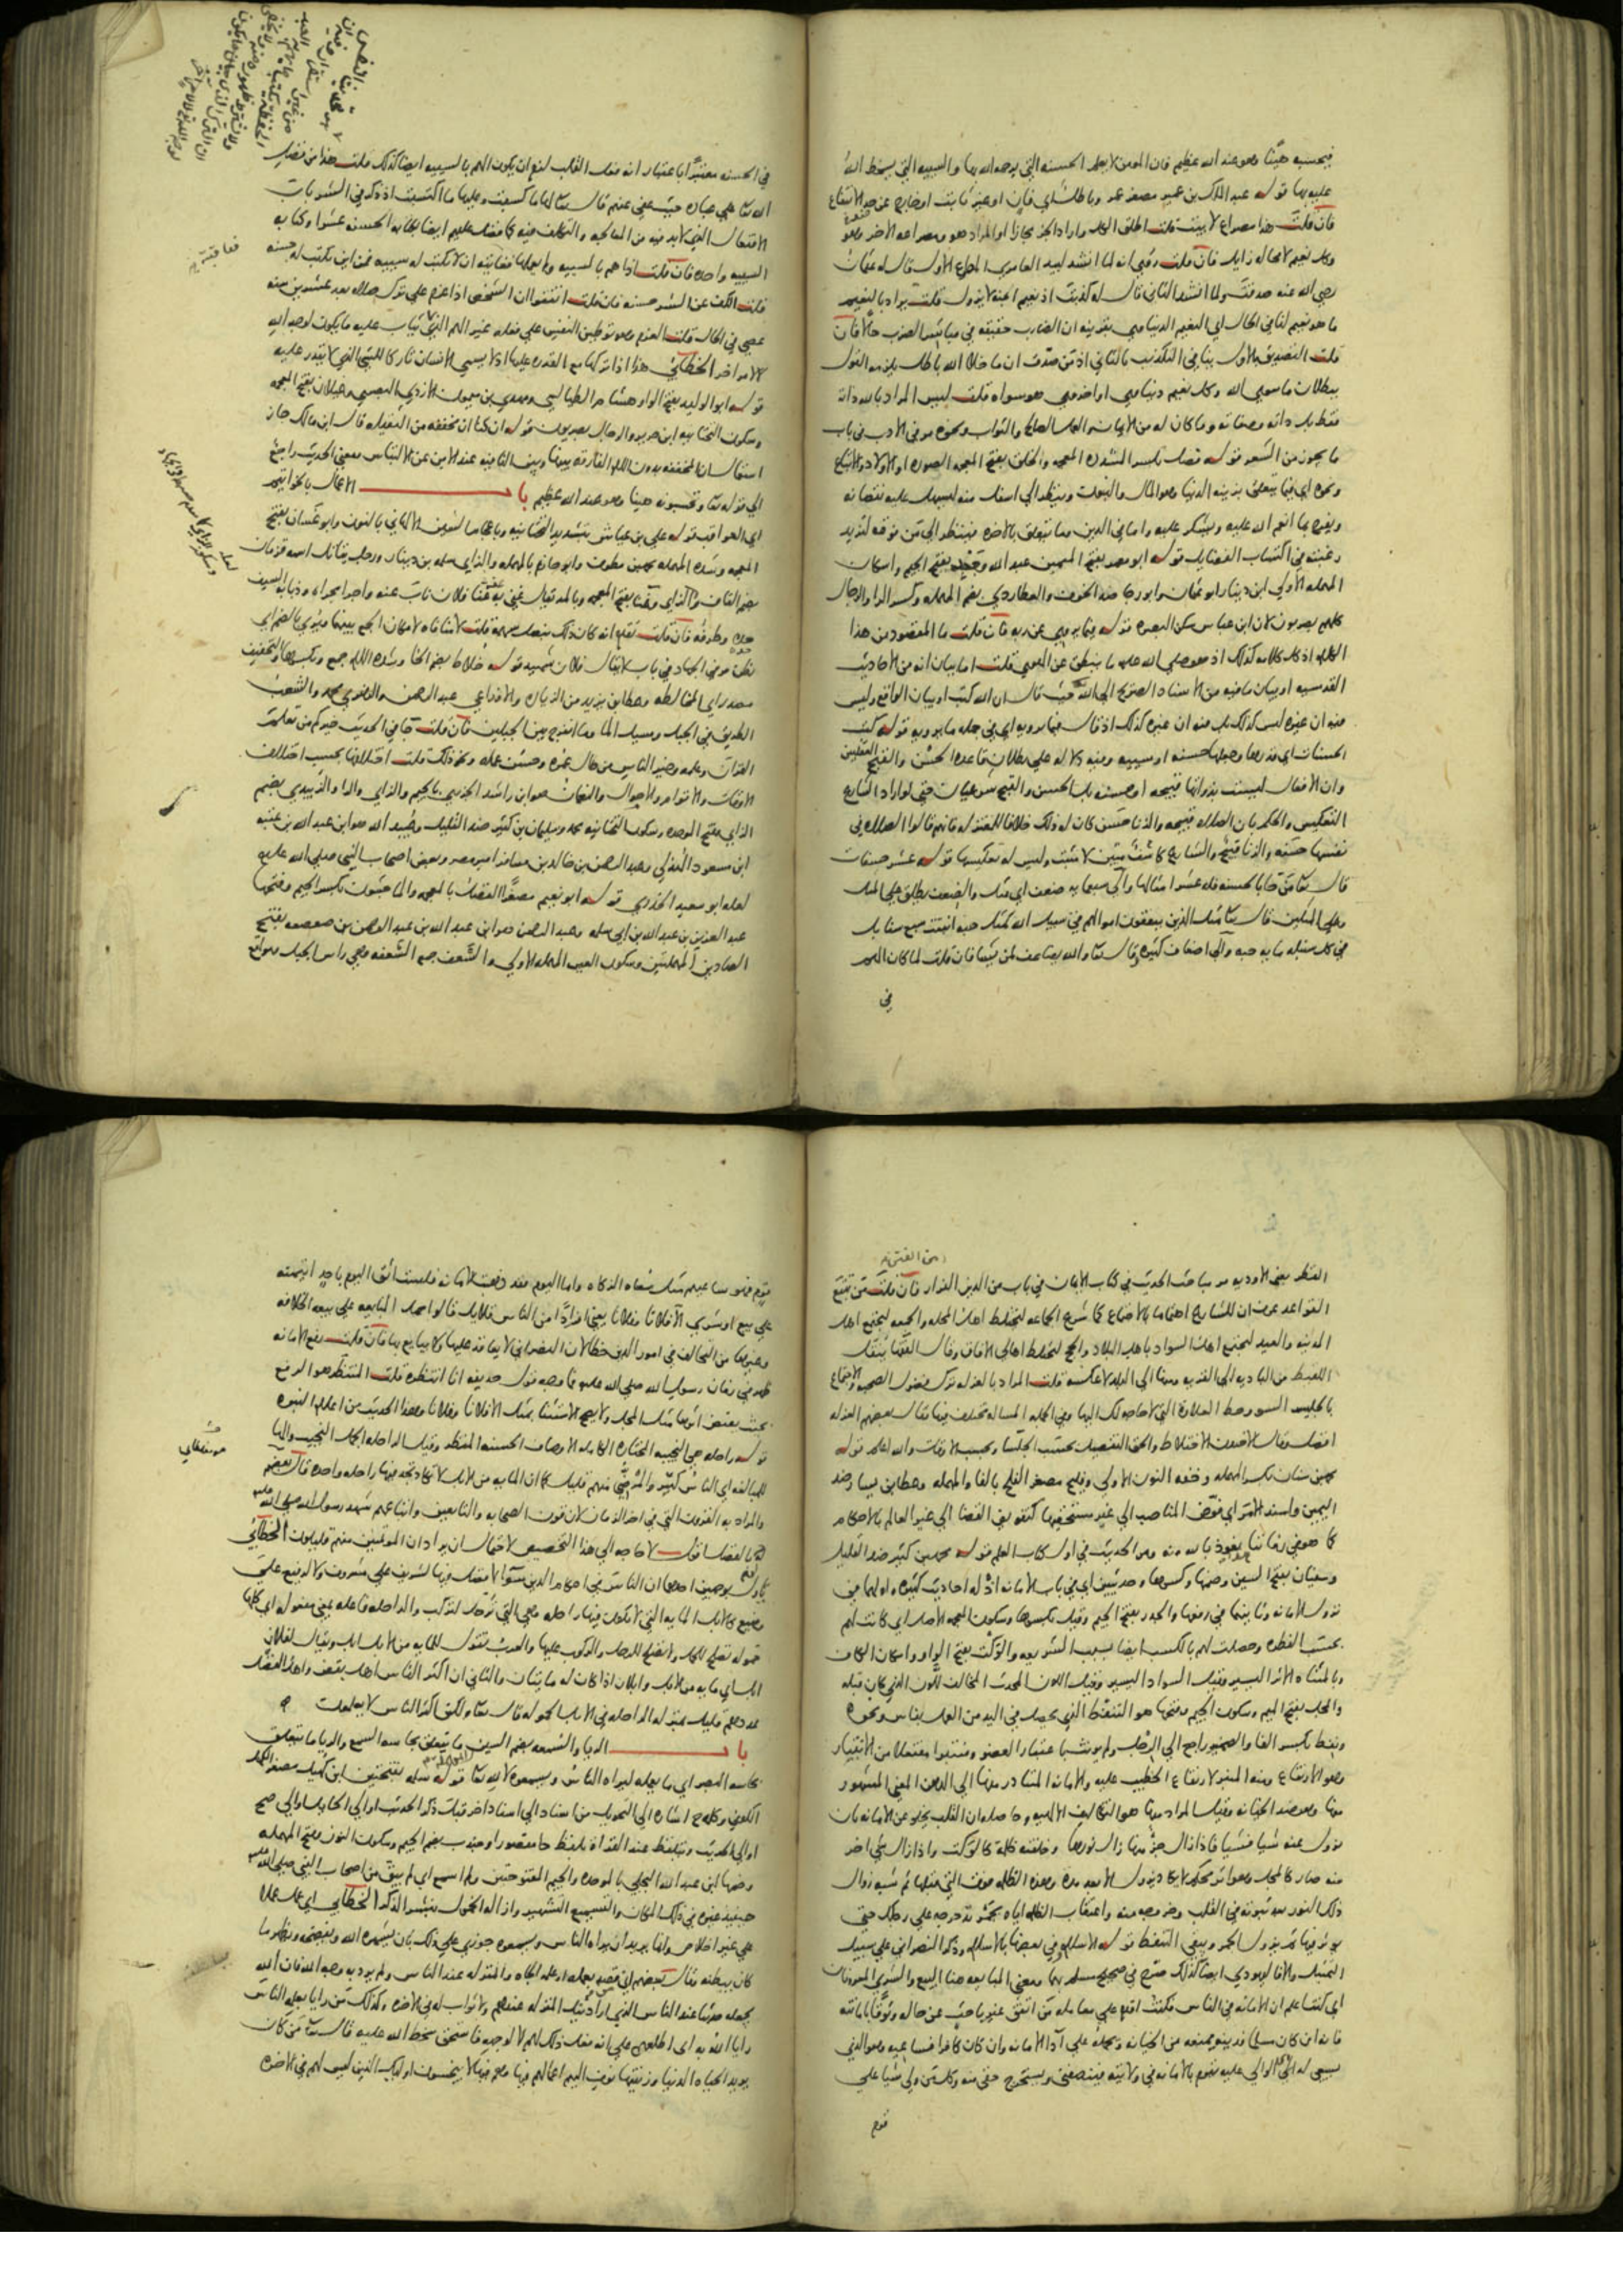 فيحسبه هينا وهو عند الله عظيم فان المومن لا يعلم الحسنه التي يرحمه الله بها والسييه التي يسخط الله
عليه بها قوله عبد الملك بن عمير مصغر عمر وباطل اي فان او غير ثابت او خارج عن حد الانتفاع
فان قلت هذا مصراع لا بيت قلت اطلق الكل واراد الجز مجازا او المراد هو ومصراعه الاخر وهو
وكل نعيم لا محاله زايل فان قلت روي انه لما انشد لبيد العامري المصراع الاول قال له عثمان
رضي الله عنه صدقت ولما انشد الثاني قال له كذبت اذ نعيم الجنه لا يزول قلت يراد بالنعيم
ما هو نعيم لنا في الحال اي النعيم الدنياوي بقرينه ان الضارب حقيقه في مباشر الضرب حالا فان
قلت التصديق بالاول ينافي التكذيب بالثاني اذ من صدق ان ما خلا الله باطل يلزمه القول
ببطلان ما سوي الله وكل نعيم دنياوي او اخروي هو سواه قلت ليس المراد بالله ذاته
فقط بل ذاته وصفاته وما كان له من الايمان والعمل الصالح والثواب ونحوه مر في الادب في باب
ما يجوز من الشعر قوله فضل بكسر المشدده المعجمه والخلق بفتح المعجمه الصوره او الاولاد والاتباع
ونحوه اي فيما يتعلق بزينه الدنيا وهو المال والبنون وينظر الي اسفل منه ليسهل عليه نقصانه
ويفرح بما انعم الله عليه ويشكر عليه واما في الدين وما يتعلق بالاخره فينظر الي من فوقه لتزيد
رغبته في اكتساب الفضايل قوله ابو معمر بفتح الميمين عبد الله وجعد بفتح الجيم واسكان
المهمله الاولي ابن دينار ابو عثمان وابو رجا ضد الخوف والعطاردي بضم المهمله وكسر الرا والرجال
كلهم بصريون لان ابن عباس سكن البصره قوله فيما يروي عن ربه فان قلت ما المقصود من هذا
الكلام اذ كل كلامه كذلك اذ هو صلي الله عليه ما ينطق عن الهوي قلت اما بيان انه من الاحاديث
القدسيه او بيان ما فيه من الاسناد الصريح الي الله حيث قال ان الله كتب او بيان الواقع وليس
فيه ان غيره ليس كذلك بل فيه ان غيره كذلك اذ قال فيما يرويه اي في جمله ما يرويه قوله كتب
الحسنات اي قدرها وجعلها حسنه او سييه وفيه دلاله علي بطلان قاعده الحسن والقبح العقليين
وان الافعال ليست بذواتها قبيحه او حسنه بل الحسن والقبح شرعيان حتي لو اراد الشارع
التعكيس والحكم بان الصلاه قبيحه والزنا حسن كان له ذلك خلافا للمعتزله فانهم قالوا الصلاه في
نفسها حسنه والزنا قبيح والشارع كاشف مبين لا مثبت وليس له تعكيسها قوله عشر حسنات
قال تعا من جا بالحسنه فله عشر امثالها والي سبعمايه ضعف اي مثل والضعف يطلق علي المثل
وعلي المثلين قال تعا مثل الذين ينفقون اموالهم في سبيل الله كمثل حبه انبتت سبع سنابل
في كل سنبله مايه حبه والي اضعاف كثيره قال تعا والله يضاعف لمن يشا فان قلت لما كان الهم
في
في الحسنه معتبرا باعتبار انه فعل القلب لزم ان يكون الهم بالسييه ايضا كذلك قلت هذا من فضل
الله تعا علي عباده حيث عفي عنهم قال تعا لها ما كسبت وعليها ما اكتسبت اذ ذكر في الشر باب
الافتعال الذي لا بد فيه من المعالجه والتكلف فيه كما فضل عليهم ايضا بكتابه الحسنه عشرا وكتابه
السييه واحده فان قلت اذا هم بالسييه ولم يعملها فغايته ان لا تكتب له سييه فمن اين تكتب له حسنه
قلت الكف عن الشر حسنه فان قلت اتفقوا ان الشخص اذا عزم علي ترك صلاه بعد عشرين سنه
عصي في الحال قلت العزم وهو توطين النفس علي فعله غير الهم الذي يثاب عليه ما يكون لوجه الله
لا لامر اخر الخطابي هذا اذا تركها مع القدره عليها اذ لا يسمي الانسان تاركا للشي الذي لا يقدر عليه
قوله ابو الوليد بفتح الواو هشام الطيالسي ومهدي بن ميمون الازدي البصري وغيلان بفتح المعجمه
وسكون التحتانيه ابن جرير والرجال بصريون قوله ان كنا ان مخففه من الثقيله قال ابن مالك جاز
استعمال ان المخففه بدون اللام الفارقه بينها وبين النافيه عند الامن عن الالتباس ومعني الحديث راجع
الي قوله تعا وتحسبونه هينا وهو عند الله عظيم باب الاعمال بالخواتيم
اي العواقب قوله علي بن عياش بتشديد التحتانيه وباعجام الشين الالهاني بالنون وابو غسان بفتح
المعجمه وشده المهمله محمد بن مطرف وابو حازم بالمهمله والزاي سلمه بن دينار ورجل يقاتل اسمه قزمان
بضم القاف وبالزاي وغنا بفتح المعجمه وبالمد يقال غني به عنه غنا فلان ناب عنه واجرا مجراه وذبابه السيف
حده وطرفه فان قلت تقدم انه كان ذلك بنصل سهمه قلت لا منافاه لامكان الجمع بينهما ويثدي بالضم اي
نظر مر في الجهاد في باب لا يقال فلان شهيد قوله خلاط بضم الخا وشده اللام جمع وبكسرها والتخفيف
مصدر اي المخالطه وعطا بن يزيد من الزياده والاوزاعي عبد الرحمن والزهري محمد والشعب
الطريق في الجبل ومسيل الما وما انفرج بين الجبلين فان قلت جا في الحديث خيركم من تعلم
القران وعلمه وخير الناس من طال عمره وحسن عمله ونحو ذلك قلت اختلافها بحسب اختلاف
الاوقات والاقوام والاحوال والنعمان هو ابن راشد الجزري بالجيم والزاي والرا والزبيدي بضم
الزاي وفتح الموحده وسكون التحتانيه محمد وسليمان بن كثير ضد القليل وعبيد الله هو ابن عبد الله بن عتبه
ابن مسعود الهذلي وعبد الرحمن بن خالد بن مسافر امير مصر وبعض اصحاب النبي صلي الله عليه
لعله ابو سعيد الخدري قوله ابو نعيم مصغرا الفضل بالمعجمه والماجشون بكسر الجيم وفتحها
عبد العزيز بن عبد الله بن ابي سلمه وعبد الرحمن هو ابن عبد الله بن عبد الرحمن بن صعصعه بفتح
الصادين المهملتين وسكون العين المهمله الاولي والشعف جمع الشعفه وهي راس الجبل ومواقع
القطر يعني الاوديه مر مباحث الحديث في كتاب الايمان في باب من الدين الفرار من الفتن فان قلت من تتبع
القواعد عرف ان للشارع اهتماما بالاجتماع كما شرع الجماعه لتختلط اهل المحله والجمعه ليجتمع اهل
المدينه والعيد ليجتمع اهل السواد باهل البلاد والحج لتختلط اهالي الافاق وقال الفقها ينقل
اللقيط من الباديه الي القريه ومنها الي البلد لا عكسه قلت المراد بالعزله ترك فضول الصحبه والاجتماع
بالجليس السو وحط العلاوه التي لا حاجه لك اليها وفي الجمله المساله مختلف فيها فقال بعضهم العزله
افضل وقال الاخرون الاختلاط والحق التفصيل بحسب الجلسا وبحسب الاوقات والله اعلم قوله
محمد بن سنان بكسر المهمله وخفه النون الاولي وفليح مصغر الفلح بالفا والمهمله وعطا بن يسار ضد
اليمين واسند الامر اي فوض المناصب الي غير مستحقيها كتفويض القضا الي غير العالم بالاحكام
كما هو في زماننا نعوذ بالله منه ومر الحديث في اول كتاب العلم قوله محمد بن كثير ضد القليل
وسفيان بفتح السين وضمها وكسرها وحديثين اي في باب الامانه اذ له احاديث كثيره واولهما في
نزول الامانه وثانيهما في رفعها والجذر بفتح الجيم وقيل بكسرها وسكون المعجمه الاصل اي كانت لهم
بحسب الفطره وحصلت لهم بالكسب ايضا بسبب الشريعه والوكت بفتح الواو واسكان الكاف
وبالمثناه الاثر اليسير وقيل السواد اليسير وقيل اللون المحدث المخالف للون الذي كان قبله
والمجل بفتح الميم وسكون الجيم وفتحها هو التنفط الذي يحصل في اليد من العمل بفاس ونحوه
ونفط بكسر الفا والضمير راجع الي الرجل ولم يونث باعتبار العضو ومنتبرا مفتعلا من الانتبار
وهو الارتفاع ومنه المنبر لارتفاع الخطيب عليه والامانه المتبادر منها الي الذهن المعني المشهور
منها وهو ضد الخيانه وقيل المراد منها هو التكاليف الالهيه وحاصله ان القلب يخلو عن الامانه بان
تزول عنه شيا فشيا فاذا زال جز منها زال نورها وخلفته ظلمه كالوكت واذا زال شي اخر
منه صار كالمجل وهو اثر محكم لا يكاد يزول الا بعد مده وهذه الظلمه فوق التي قبلها ثم شبه زوال
ذلك النور بعد ثبوته في القلب وخروجه منه واعتقاب الظلمه اياه بجمر تدحرجه علي رجلك حتي
يوثر فيها ثم يزول الجمر ويبقي التنفط قوله الاسلام وفي بعضها بالاسلام وذكر النصراني علي سبيل
التمثيل والا فاليهودي ايضا كذلك صرح في صحيح مسلم بهما ومعني المبايعه هنا البيع والشري المعروفان
اي كنت اعلم ان الامانه في الناس فكنت اقدم علي معامله من اتفق غير باحث عن حاله وثوقا بامانته
فانه ان كان مسلما فدينه يمنعه من الخيانه ويحمله علي ادا الامانه وان كان كافرا فساعيه وهو الذي
يسعي له اي الوالي عليه يقوم بالامانه في ولايته فينصفني ويستخرج حقي منه وكل من ولي شيا علي
قوم
قوم فهو ساعيهم مثل سعاه الزكاه واما اليوم فقد ذهبت الامانه فلست اثق اليوم باحد ائتمنه
علي بيع او شري الا فلانا وفلانا يعني افرادا من الناس قلايل قالوا حمل المبايعه علي بيعه الخلافه
وغيرها من التحالف في امور الدين خطا لان النصراني لا يعاقد عليها ولا يبايع بها فان قلت رفع الامانه
ظهر في زمان رسول الله صلي الله عليه فما وجه قول حذيفه انا انتظره قلت المنتظر هو الرفع
بحيث يقبض اثرها مثل المجل ولا يصح الاستثنا بمثل الا فلانا وفلانا وهذا الحديث من اعلام النبوه
قوله راحله هي النجيبه المختاره الكامله الاوصاف الحسنه المنظر وقيل الراحله الجمل النجيب والها
للمبالغه اي الناس كثير والمرضي منهم قليل كما ان المايه من الابل لا تكاد تجد فيها راحله واحده قال بعضهم
والمراد به القرون التي في اخر الزمان لان قرن الصحابه والتابعين واتباعهم شهد رسول الله صلي الله عليه
لهم بالفضل اقول لا حاجه الي هذا التخصيص لاحتمال ان يراد ان المومنين منهم قليلون الخطابي
تاولوه بوجهين احدهما ان الناس في احكام الدين سوا لا فضل فيها لشريف علي مشروف ولا لرفيع علي
وضيع كالابل المايه التي لا تكون فيها راحله وهي التي ترحل لتركب والراحله فاعله بمعني مفعوله اي كلها
حموله تصلح للحمل ولا تصلح للرحل والركوب عليها والعرب تقول للمايه من الابل ابل ويقال لفلان
ابل اي مايه من الابل وابلان اذا كان له مايتان والثاني ان اكثر الناس اهل نقص واهل الفضل
عددهم قليل بمنزله الراحله في الابل الحموله قال تعا ولكن اكثر الناس لا يعلمون
باب الريا والسمعه بضم السين ما يتعلق بحاسه السمع والريا ما يتعلق
بحاسه البصر اي ما يعمله ليراه الناس او يسمعوه لا لله تعا قوله سلمه بفتحتين ابن كهيل مصغر الكهل
الحديث وتلفظ عند القراه بلفظ حا مقصورا وجندب بضم الجيم وسكون النون وفتح المهمله
وضمها ابن عبد الله البجلي بالموحده والجيم المفتوحتين ولم اسمع اي لم يبق من اصحاب النبي صلي الله عليه
حينيذ غيره في ذلك المكان والتسميع التشهير وازاله الخمول بنشر الذكر الخطابي اي عمل عملا
علي غير اخلاص وانما يريد ان يراه الناس ويسمعوه جوزي علي ذلك بان يشهره الله ويفضحه ويظهر ما
كان يبطنه وقال بعضهم اي قصد بعمله الجاه والمنزله عند الناس ولم يرد به وجه الله فان الله
يجعله حديثا عند الناس الذي اراد نيل المنزله عندهم ولا ثواب له في الاخره وكذلك من رايا بعمله الناس
رايا الله به اي اطلعهم علي انه فعل ذلك لهم لا لوجهه فاستحق سخط الله عليه قال تعا من كان
يريد الحياه الدنيا وزينتها نوف اليهم اعمالهم فيها وهم فيها لا يبخسون اوليك الذين ليس لهم في الاخره